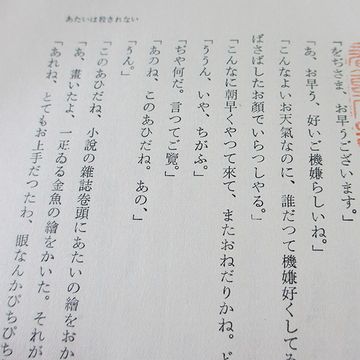 あたいは殺されない
「をぢさま、お早うございます。」
「あ、お早う、好いご機嫌らしいね。」
「こんなよいお天氣なのに、誰だつて機嫌好くしてる
ばさばしたお顏でいらつしやる。」
「こんなに朝早くやつて來て、またおねだりかね。ど
「ううん、いや、ちがふ。」
「ぢや何だ。言つてご覽。」
「あのね、このあひだね。あの、」
「うん。」
「このあひだね、小說の雜誌卷頭にあたいの繪をおか
「あ、畫いたよ、一疋ゐる金魚の繪をかいた。それが
「あれね、とてもお上手だつたわ、眼なんかぴちぴち